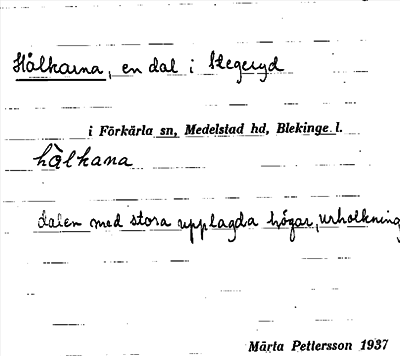 Hålkarna, en dal i Stegeryd
i Förkärla sn, Medelstad hd, Blekinge l.
hålkana
dalen med stora upplagda högar, urholkning
Märta Pettersson 1937